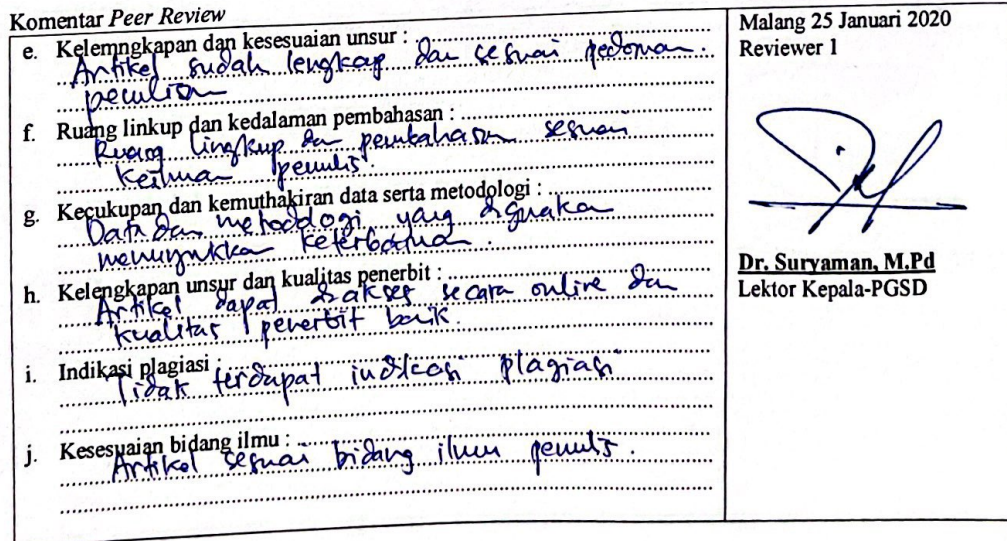 Komentar Peer Review
e. Kelemngkapan dan kesesuaian unsur :
Artikel sudah lengkap dan sesuai pedoman
penulisan
f. Ruang linkup dan kedalaman pembahasan :
Ruang lingkup dan pembahasan sesuai
keilmuan penulis.
g. Kecukupan dan kemuthakiran data serta metodologi :
Data dan metodologi yang digunakan
menunjukkan keterbaruan.
h. Kelengkapan unsur dan kualitas penerbit :
Artikel dapat diakses secara online dan
kualitas penerbit baik.
i. Indikasi plagiasi :
Tidak terdapat indikasi plagiasi
j. Kesesuaian bidang ilmu :
Artikel sesuai bidang ilmu penulis.
Malang 25 Januari 2020
Reviewer 1
Dr. Suryaman, M.Pd
Lektor Kepala-PGSD